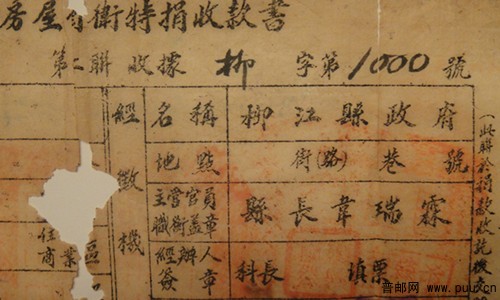 房屋自衛特捐收款書
第二聯 收據 柳 字第1000號
經徵機
名稱 柳江縣政府
地點 街(路) 巷 號
主管官員職銜蓋章 縣長韋瑞霖
經辦人簽章 科長 填票
住 區
商業
(此聯於捐款收訖後
普邮网 www.puu.cn